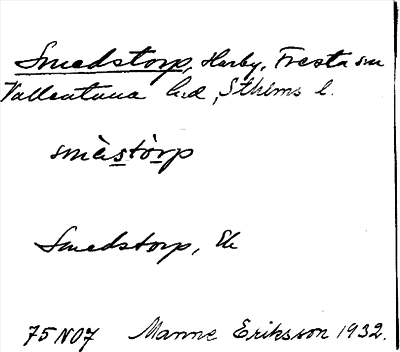 Smedstorp, Harby, Fresta sn
Vallentuna hd, Sthlms l.
smèstòrp
Smedstorp, Ek
75 NO7 Manne Eriksson 1932.